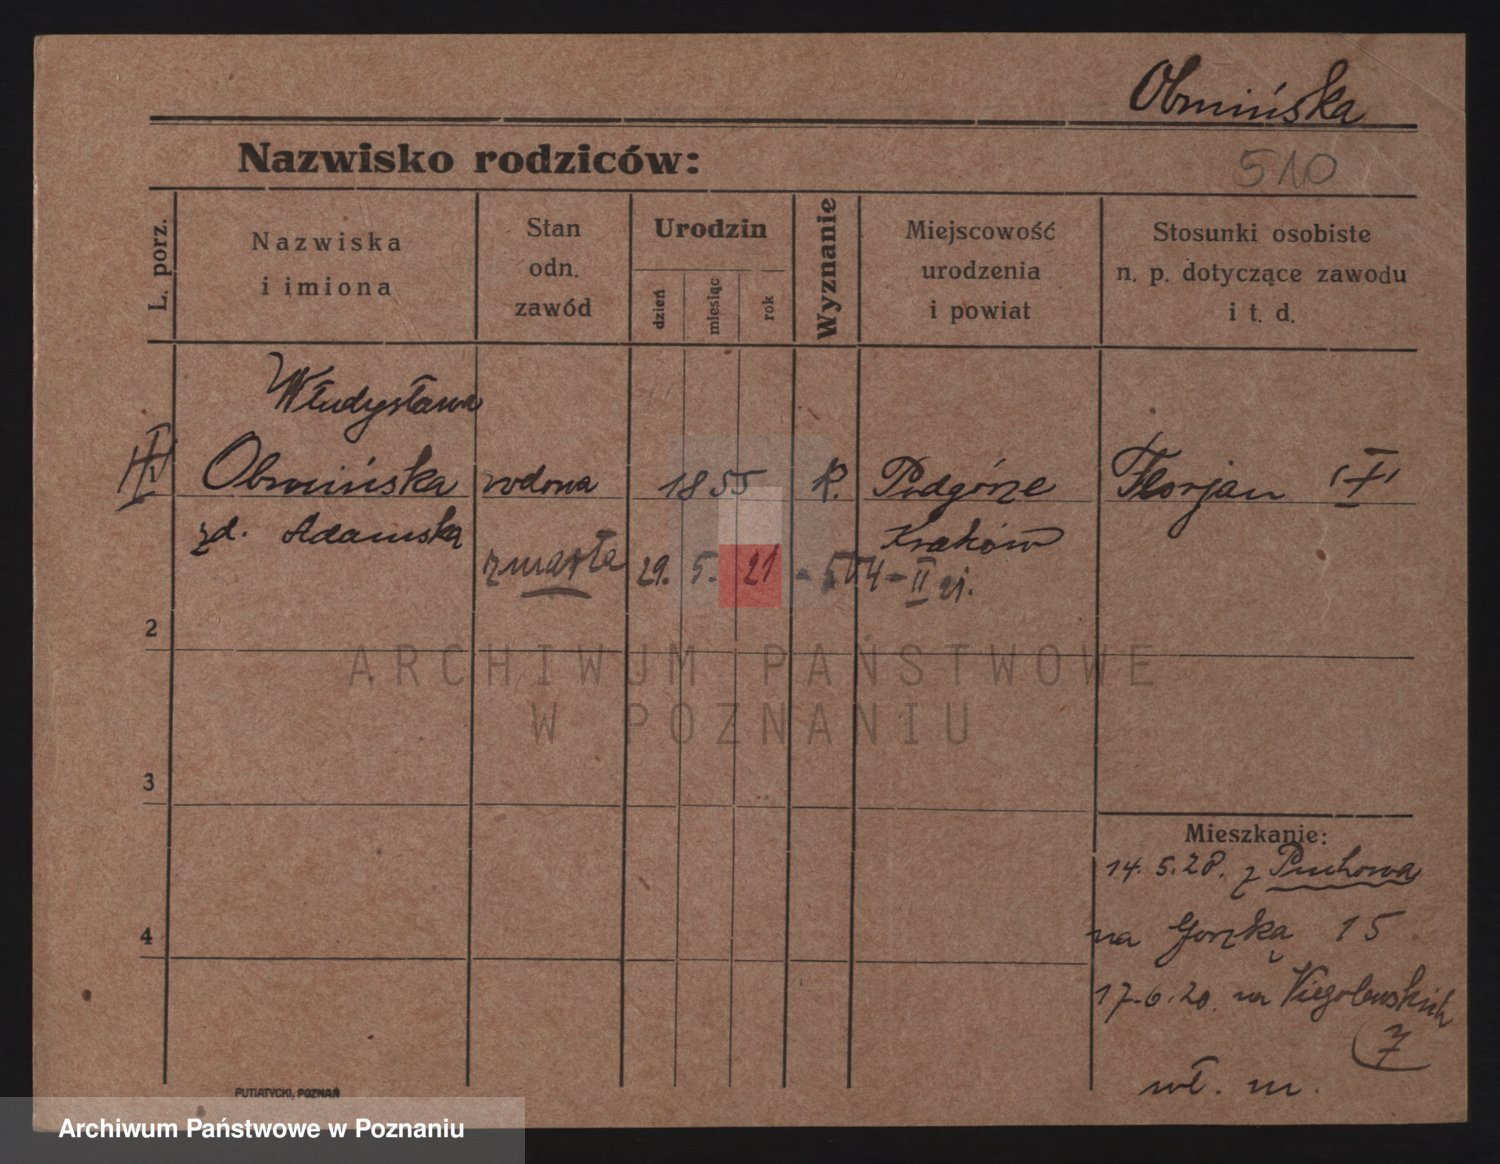 Obmińska
Nazwisko rodziców:
510
L. porz.
Nazwiska
i imiona
Stan
odn.
zawód
Urodzin
dzień
miesiąc
rok
Wyznanie
Miejscowość
urodzenia
i powiat
Stosunki osobiste
n. p. dotyczące zawodu
i t. d.
Władysława
Obmińska wdowa 1855 R. Podgórze Florjan I
zd. Adamska Kraków
zmarła 29. 5. 21 - 504 - II
2
ARCHIWUM PAŃSTWOWE
W POZNANIU
3
Mieszkanie:
14. 5. 20. z
na 15
4
17.6.20. na Niegolewskich
7
wł. m.
PUTIATYCKI, POZNAŃ
Archiwum Państwowe w Poznaniu